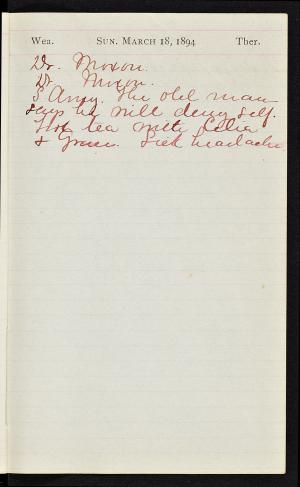 Wea. SUN. MARCH 18, 1894 Ther.
Dr. Moxom.
Dr. Moxom.
S Army. The old man
says he will deny self.
Took tea with Celia
& Grace. Sick headache.